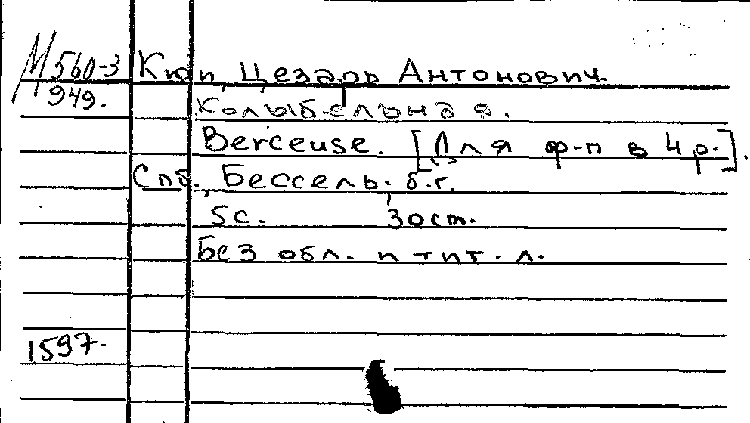 М 560-3 Кюи, Цезарь Антонович.
949. Колыбельная.
Berceuse. [Для ф-п в 4 р.].
Спб., Бессель. б.г.
5с. 30ст.
Без обл. и тит. л.
1597.